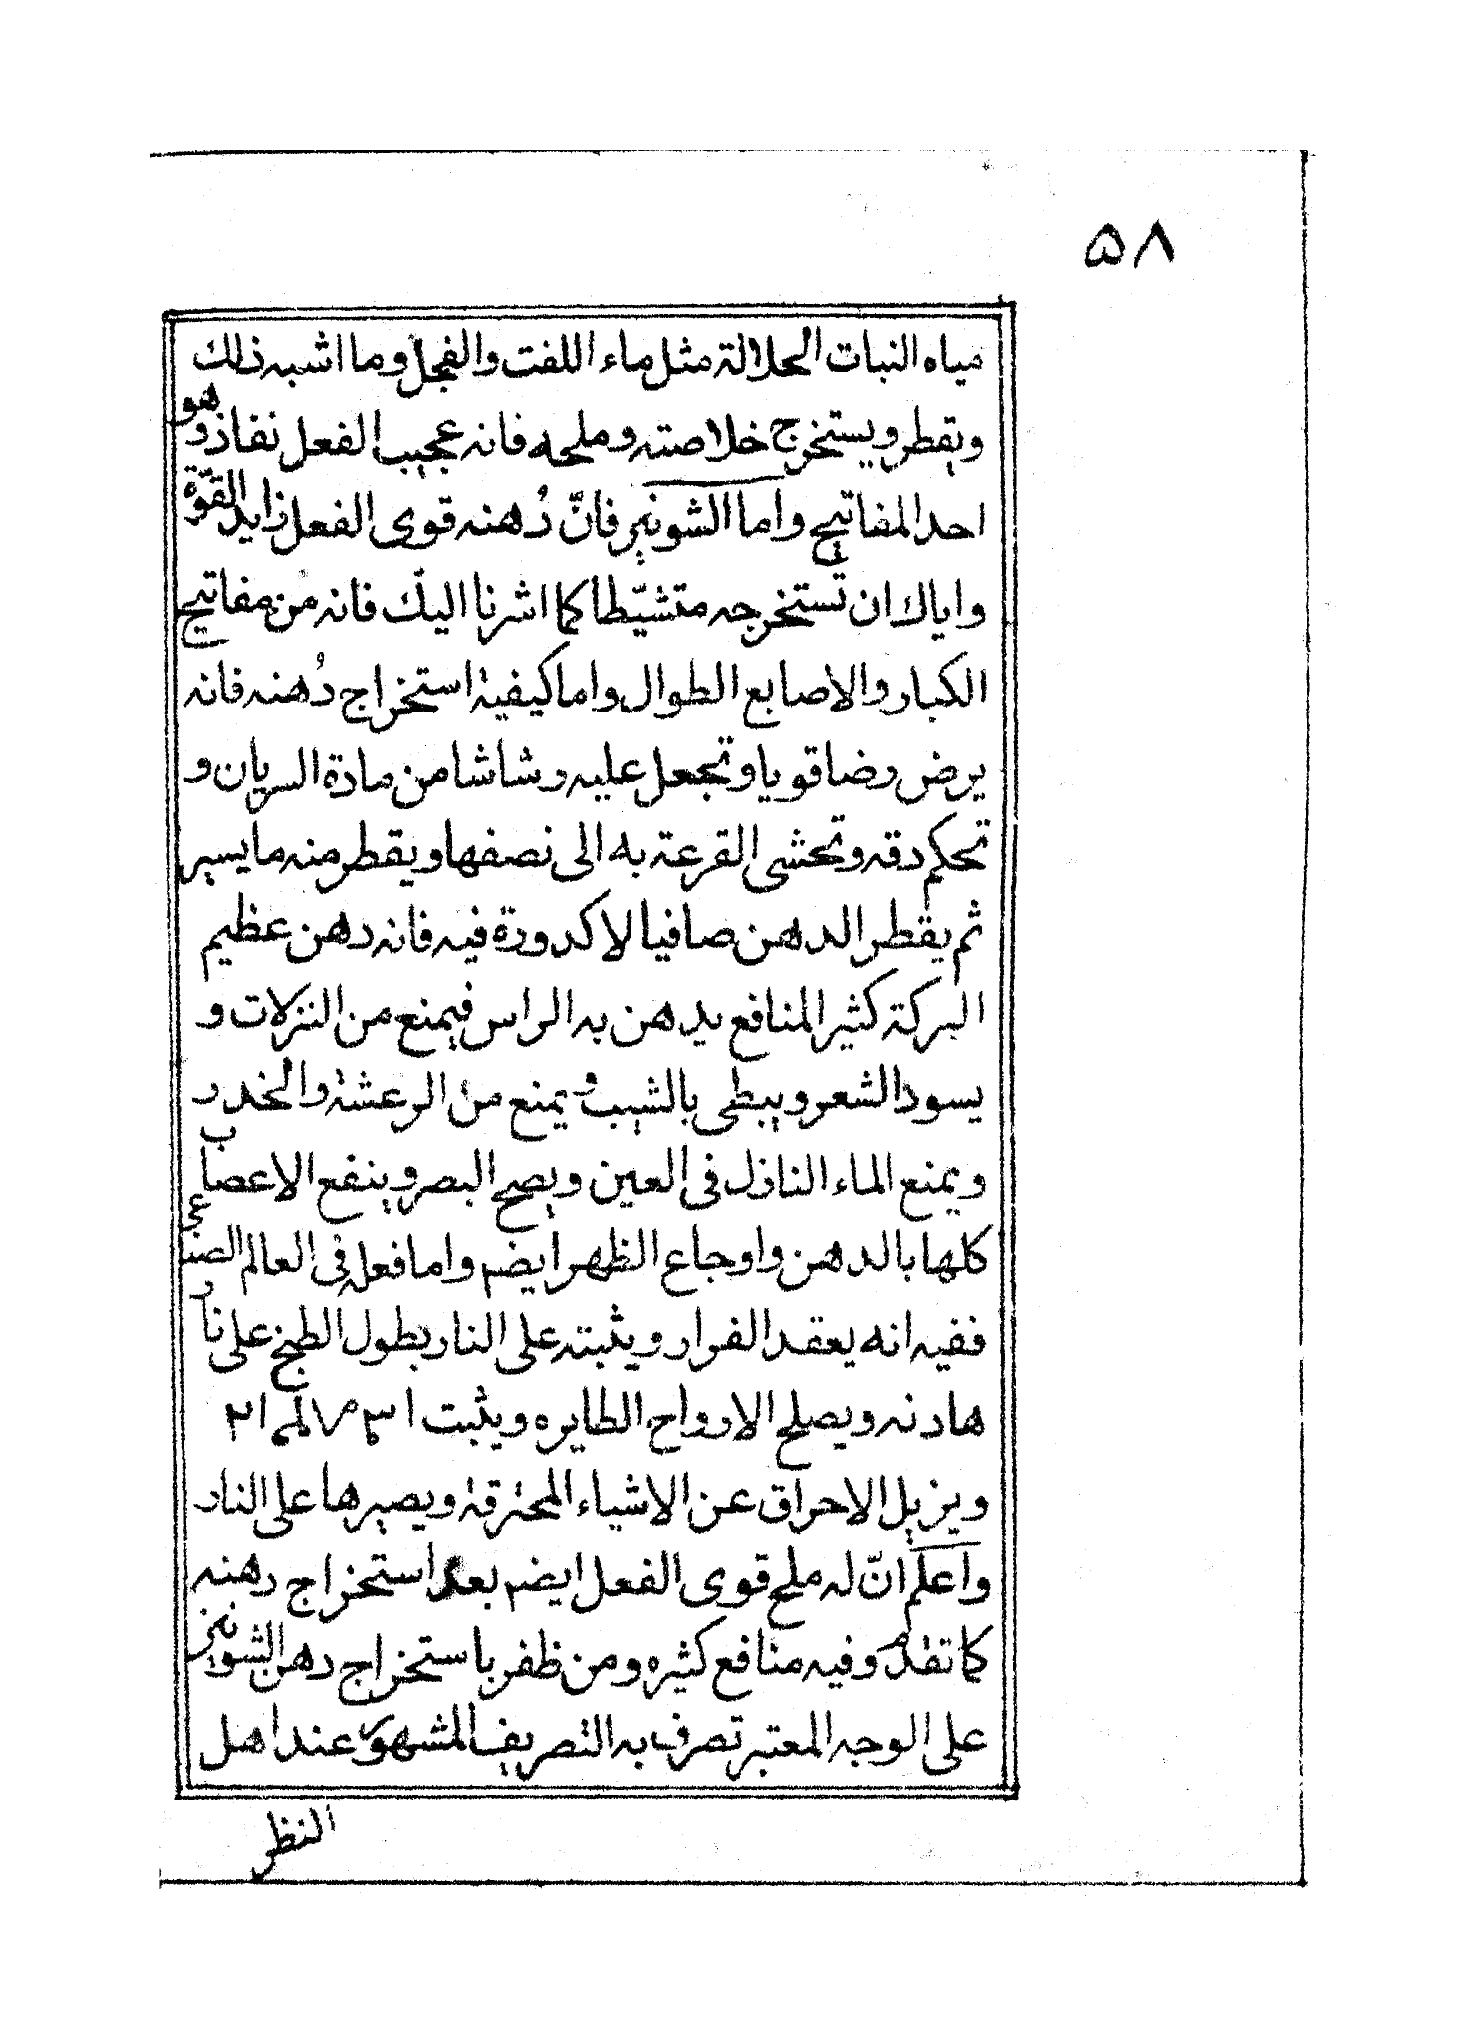 ٥٨
مياه النبات الحلالة مثل ماء اللفت والفجل وما اشبه ذلك
ويقطر ويستخرج خلاصته وملحه فانه عجيب الفعل نفاذ وهو
احد المفاتيح واما الشونيز فانّ دُهنه قوى الفعل زايد القوّة
واياك ان تستخرجه متشيّطا كما اشرنا اليك فانه من مفاتيح
الكبار والاصابع الطوال واما كيفية استخراج دُهنه فانه
يرض رضا قويا وتجعل عليه رشاشا من مادة السريان و
تحكم دقه وتحشى القرعة به الى نصفها ويقطر منه ما يسير
ثم يقطر الدهن صافيا لا كدورة فيه فانه دهن عظيم
البركة كثير المنافع يدهن به الراس فيمنع من النزلات و
يسود الشعر ويبطى بالشيب ويمنع من الرعشة والخدر
ويمنع الماء النازل فى العين ويصح البصر وينفع الاعصاب
كلها بالدهن واوجاع الظهر ايضم واما فعله فى العالم الصناعى
ففيه انه يعقد الفرار ويثبته على النار بطول الطبخ على نار
هادنه ويصلح الارواح الطايره ويثبت
ويزيل الاحراق عن الاشياء المحترقة ويصيرها على النار
واعلم انّ له ملح قوى الفعل ايضم بعد استخراج دهنه
كما تقدم وفيه منافع كثيره ومن ظفر باستخراج دهن الشونيز
على الوجه المعتبر تصرف به التصريف المشهور عند اهل
النظر